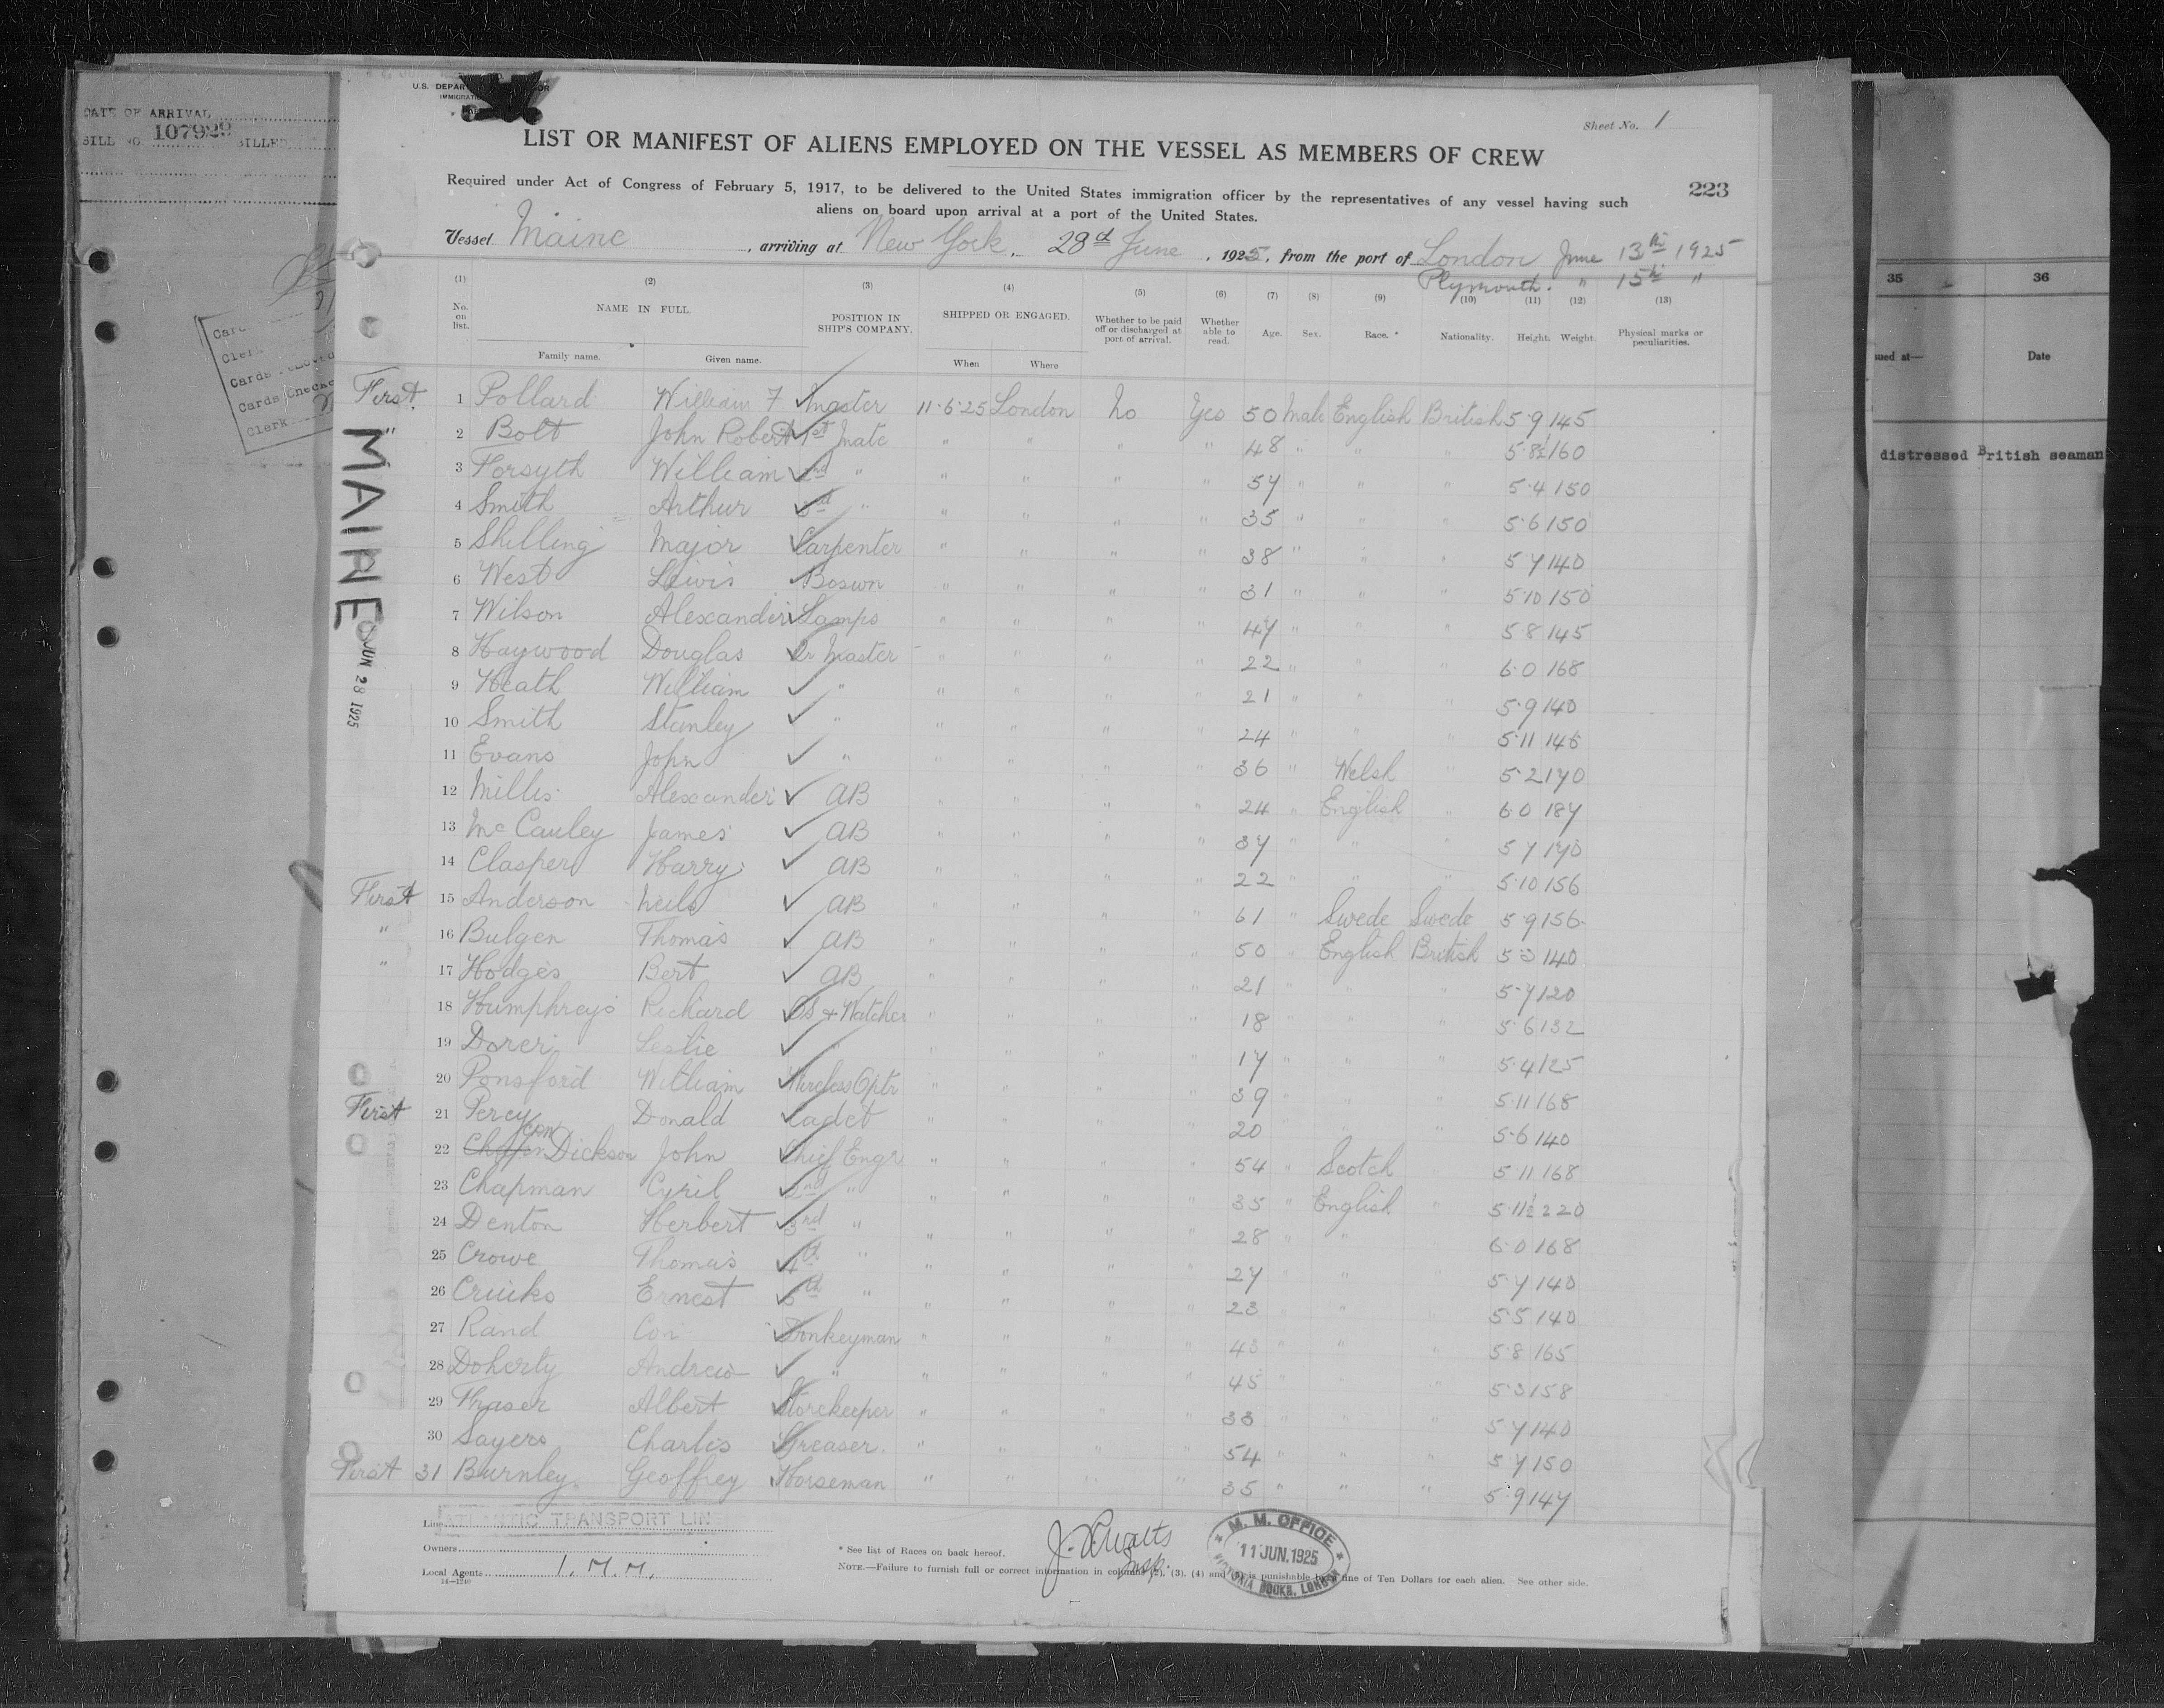 DATE OF ARRIVAL
BILL NO. 107929 BILLED
Cards
Clerk
Cards removed
Cards Checked
Clerk
U.S. DEPAR
IMMIGRAT
Sheet No. 1
LIST OR MANIFEST OF ALIENS EMPLOYED ON THE VESSEL AS MEMBERS OF CREW
223
Required under Act of Congress of February 5, 1917, to be delivered to the United States immigration officer by the representatives of any vessel having such
aliens on board upon arrival at a port of the United States.
Vessel Maine, arriving at New York, 28th June, 1925, from the port of London June 13th 1925
Plymouth. " 15th "
(1) (2) (3) (4) (5) (6) (7) (8) (9) (10) (11) (12) (13)
No. on list. NAME IN FULL. POSITION IN SHIP'S COMPANY. SHIPPED OR ENGAGED. Whether to be paid off or discharged at port of arrival. Whether able to read. Age. Sex. Race.* Nationality. Height. Weight. Physical marks or peculiarities.
Family name. Given name. When Where
First 1 Pollard William F Master 11-6-25 London No Yes 50 Male English British 5·9 145
" 2 Bolt John Robert 1st Mate " " " " 48 " " " 5·8½ 160
3 Forsyth William 2nd " " " " " 57 " " " 5·4 150
4 Smith Arthur 3rd " " " " " 35 " " " 5·6 150
5 Shilling Major Carpenter " " " " 38 " " " 5 7 140
6 West Lewis Boswn " " " " 31 " " " 5·10 150
7 Wilson Alexander Lamps " " " " 47 " " " 5 8 145
8 Haywood Douglas Qr Master " " " " 22 " " " 6·0 168
9 Heath William " " " " " 21 " " " 5·9 140
10 Smith Stanley " " " " " 24 " " " 5·11 145
11 Evans John " " " " " 36 " Welsh " 5·2 170
12 Millis Alexander AB " " " " 24 " English " 6·0 187
13 McCauley James AB " " " " 37 " " " 5 7 170
14 Clasper Harry AB " " " " 22 " " " 5·10 156
First 15 Anderson Neils AB " " " " 61 " Swede Swede 5·9 156
" 16 Bulgen Thomas AB " " " " 50 " English British 5 3 140
" 17 Hodges Bert AB " " " " 21 " " " 5·7 120
18 Humphreys Richard OS & Watcher " " " " 18 " " " 5·6 132
19 Dorer Leslie " " " " " 17 " " " 5·4 125
20 Ponsford William Wireless Optr " " " " 39 " " " 5·11 168
First 21 Percy Donald Cadet " " " " 20 " " " 5·6 140
22 Dickson John Chief Engr " " " " 54 " Scotch " 5 11 168
23 Chapman Cyril 2nd " " " " " 35 " English " 5·11½ 220
24 Denton Herbert 3rd " " " " " 28 " " " 6·0 168
25 Crowe Thomas 4th " " " " " 27 " " " 5·7 140
26 Ernest 5th " " " " " 23 " " " 5·5 140
27 Rand Con Donkeyman " " " " 43 " " " 5·8 165
28 Doherty Andrew " " " " " 45 " " " 5·3 158
29 Fraser Albert Storekeeper " " " " 33 " " " 5·7 140
30 Sayers Charles Greaser. " " " " 54 " " " 5 7 150
First 31 Burnley Geoffrey Horseman " " " " 35 " " " 5·9 147
MAINE
JUN 28 1925
Line ATLANTIC TRANSPORT LINE
Owners
Local Agents I. M. M.
14—1240
* See list of Races on back hereof.
NOTE.—Failure to furnish full or correct information in columns (2), (3), (4) and is punishable by fine of Ten Dollars for each alien. See other side.
Insp.
M. M. OFFICE
11 JUN. 1925
VICTORIA DOCKS, LONDON
35 36
sued at— Date
distressed British seaman